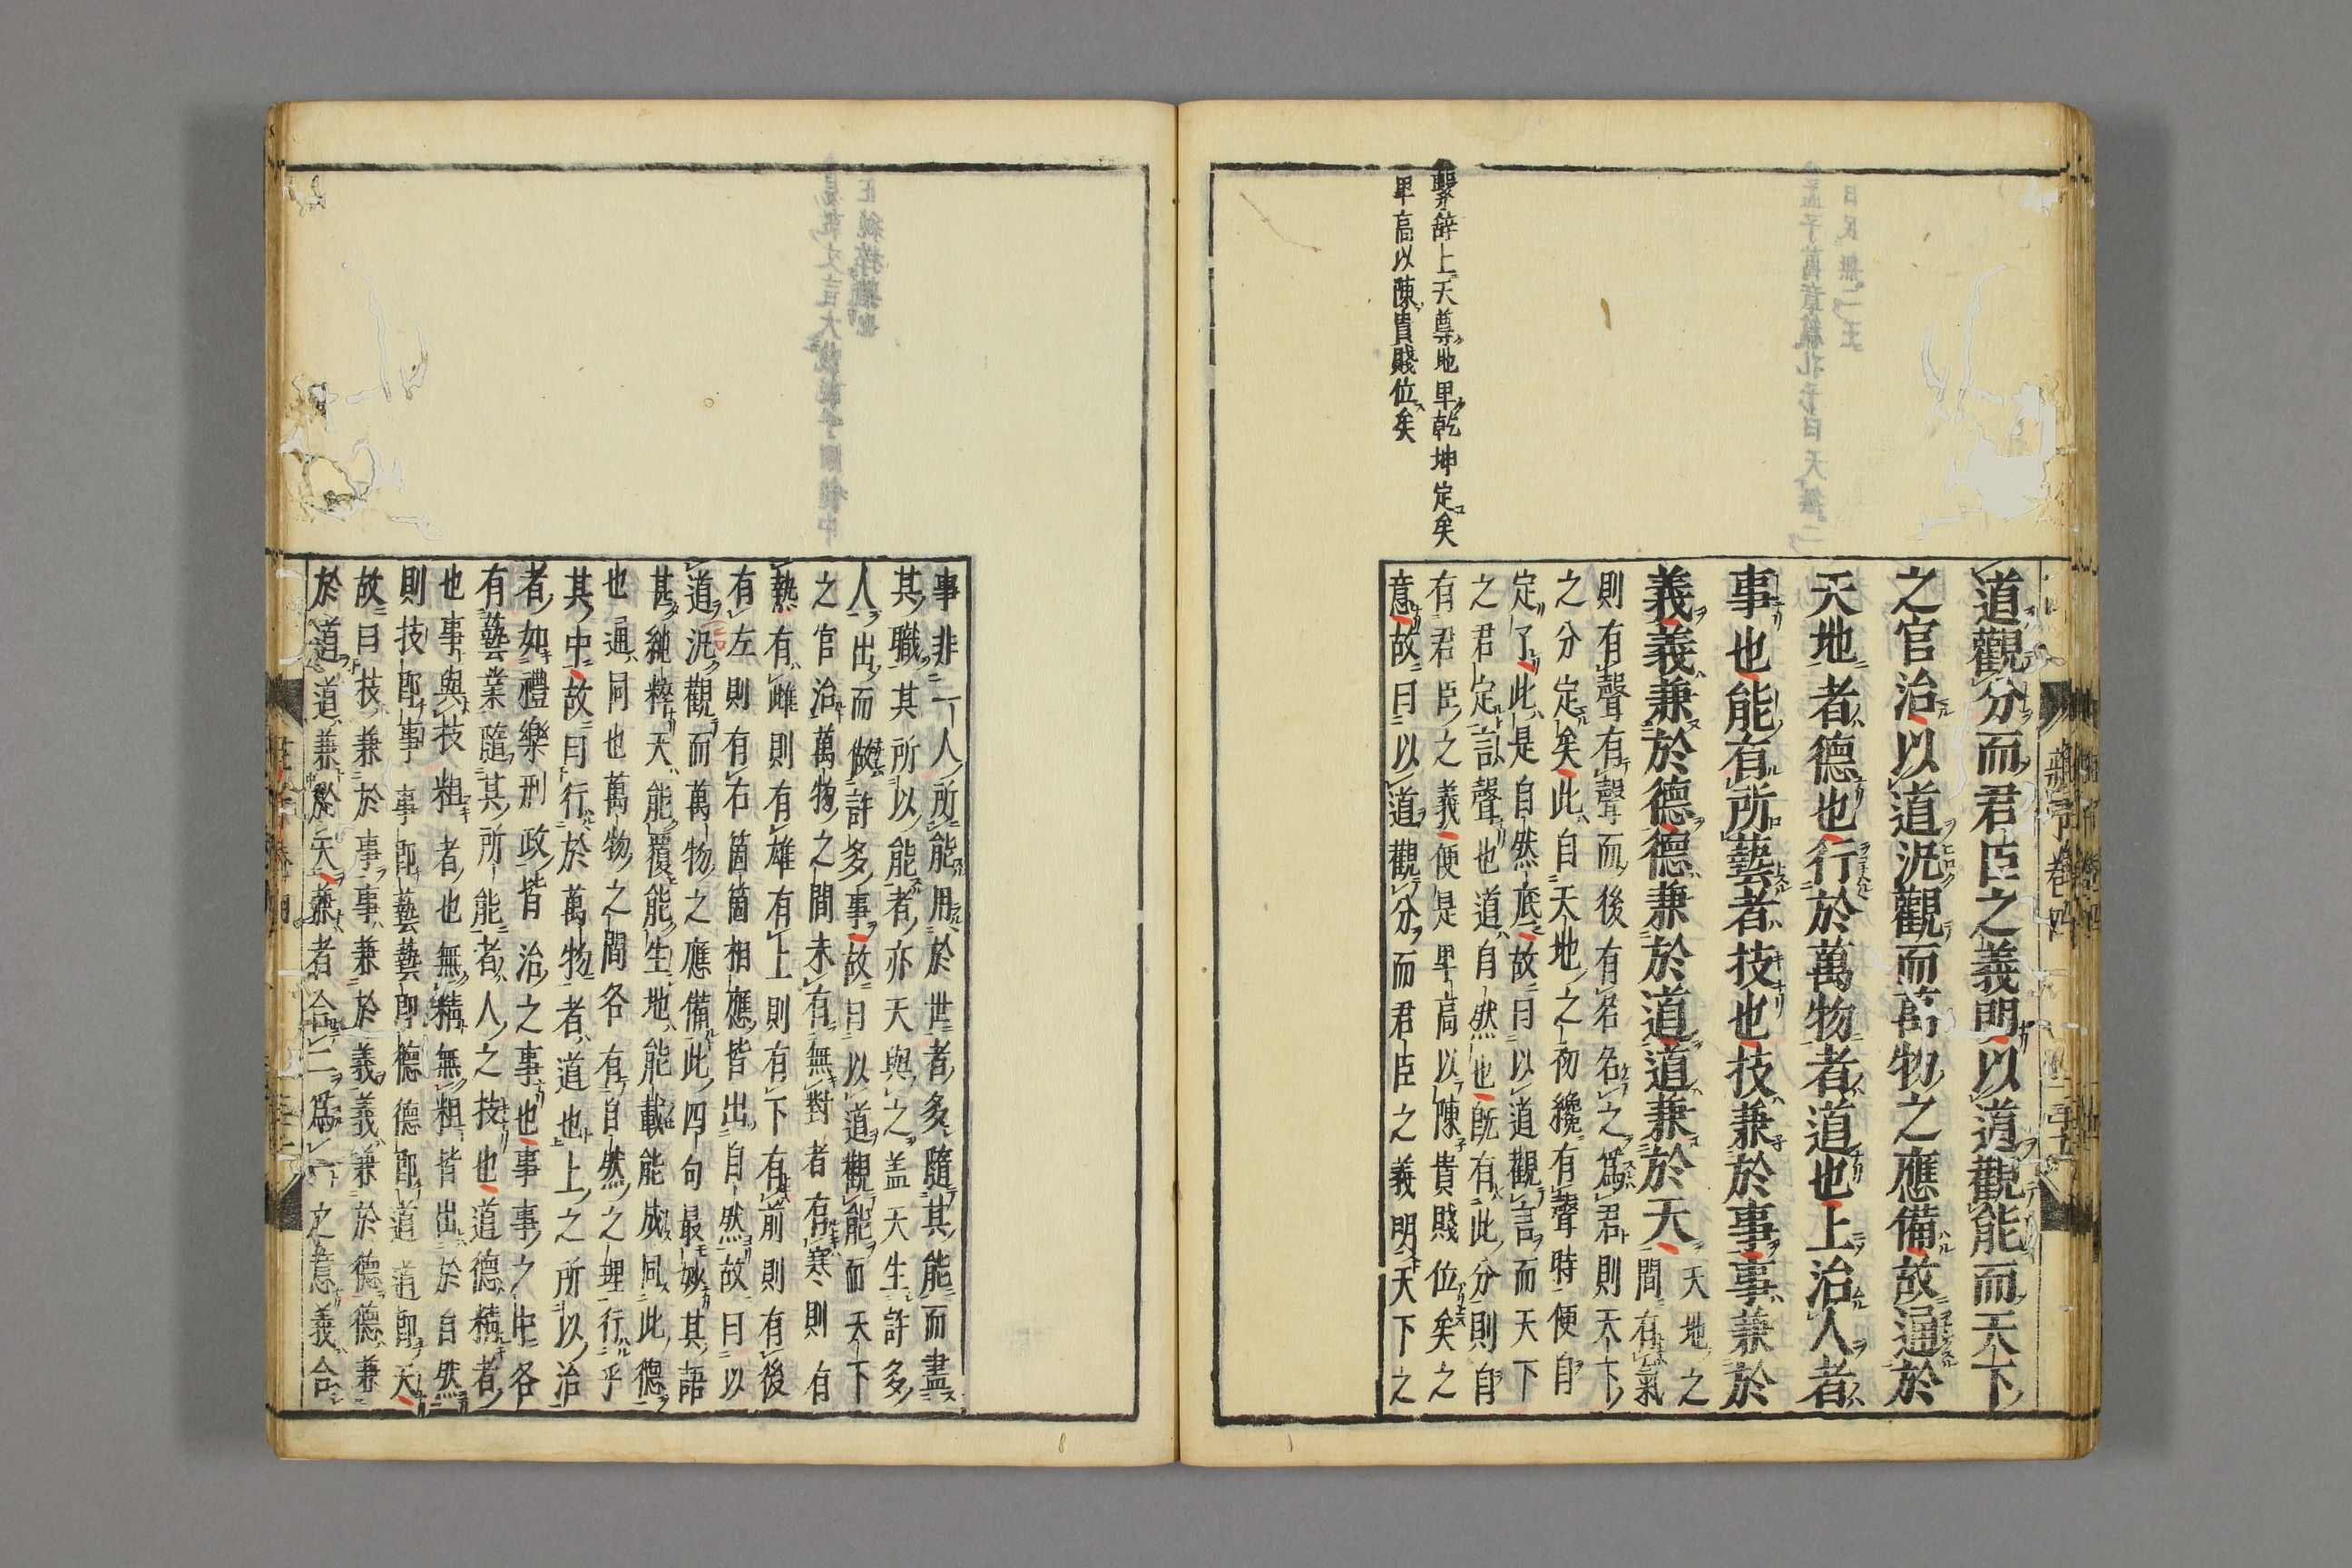 繫辭上天尊地卑乾坤定矣
卑高以陳貴賤位矣
道觀分而君臣之義明以道觀能而天下
之官治以道汎觀而萬物之應備故通於
天地者德也行於萬物者道也上治人者
事也能有所藝者技也技兼於事事兼於
義義兼於德德兼於道道兼於天
天地之
間有氣
則有聲有聲而後有名名之爲君則天下
之分定矣此自天地之初纔有聲時便自
定了此是自然底故曰以道觀言而天下
之君定言聲也道自然也既有此分則自
有君臣之義便是卑高以陳貴賤位矣之
意故曰以道觀分而君臣之義明天下之
事非一人所能用於世者多隨其能而盡
其職其所以能者亦天與之盖天生許多
人出而做許多事故曰以道觀能而天下
之官治萬物之間未有無對者有寒則有
熱有雌則有雄有上則有下有前則有後
有左則有右箇箇相應皆出自然故曰以
道汎觀而萬物之應備此四句最妙其語
甚純粹天能覆能生地能載能成同此德
也通同也萬物之間各有自然之理行乎
其中故曰行於萬物者道也上之所以治
者如禮樂刑政皆治之事也事事之中各
有藝業隨其所能者人之技也道德精者
也事與技粗者也無精無粗皆出於自然
則技卽事事卽藝藝卽德德卽道道卽天
故曰技兼於事事兼於義義兼於德德兼
於道道兼於天兼者合二爲一之意義合